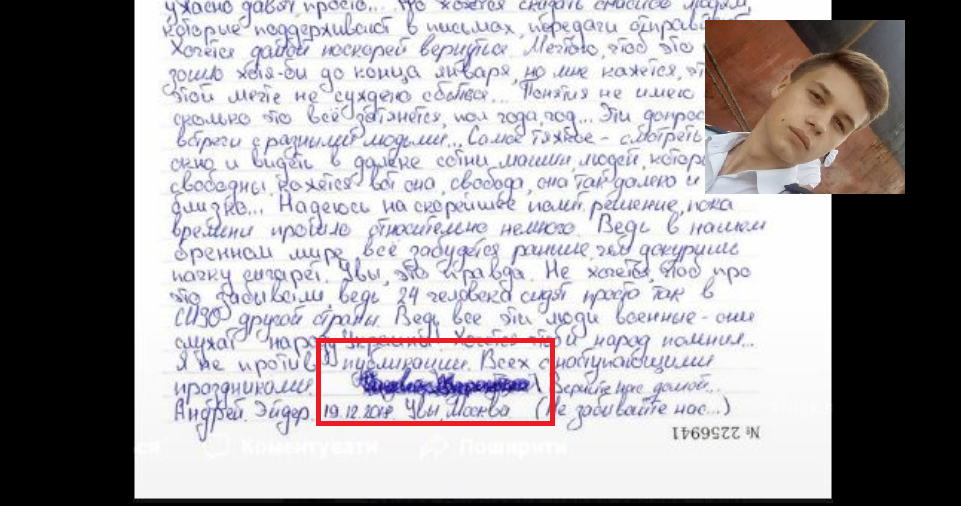 ужасно давят просто... Но хочется сказать спасибо людям,
которые поддерживают в письмах, передачи отправ
Хочется домой поскорей вернуться. Мечтаю, чтоб это
зошло хотя-бы до конца января, но мне кажется,
этой мечте не суждено сбыться... Понятия не имею
сколько это всё затянется, пол года, год... Эти допрос
встречи с разными людьми... Самое тяжкое - смотреть
окно и видеть в далеке сотни машин, людей, котор
свободны, кажется вот она, свобода, она так далеко и
близко... Надеюсь на скорейшее полит. решение, пока
времени прошло относительно немного. Ведь в нашем
бренном мире всё забудется раньше, чем докуришь
пачку сигарет. Увы, это правда. Не хочется, чтоб про
это забывали, ведь 24 человека сидят просто так в
СИЗО другой страны. Ведь все эти люди военные - они
служат народу Украины! Хочется чтоб и народ помнил...
Я не против публикации. Всех с наступающими
праздниками. Верните нас домой...
Андрей Эйдер. 19.12.2018. Увы, Москва (Не забывайте нас...)
№ 2256941
ся Коментувати Поширити